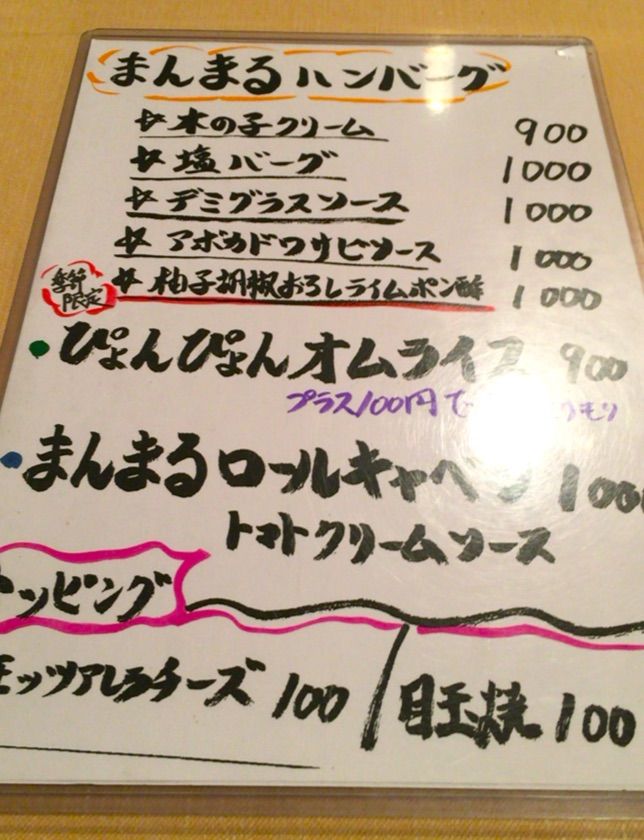 まんまるハンバーグ
☆木の子クリーム 900
☆塩バーグ 1000
☆デミグラスソース 1000
☆アボカドワサビソース 1000
季節限定 ☆柚子胡椒おろしライムポン酢 1000
・ぴょんぴょんオムライス 900
プラス100円で もり
・まんまるロールキャベツ 1000
トマトクリームソース
トッピング
モッツアレラチーズ 100 / 目玉焼 100